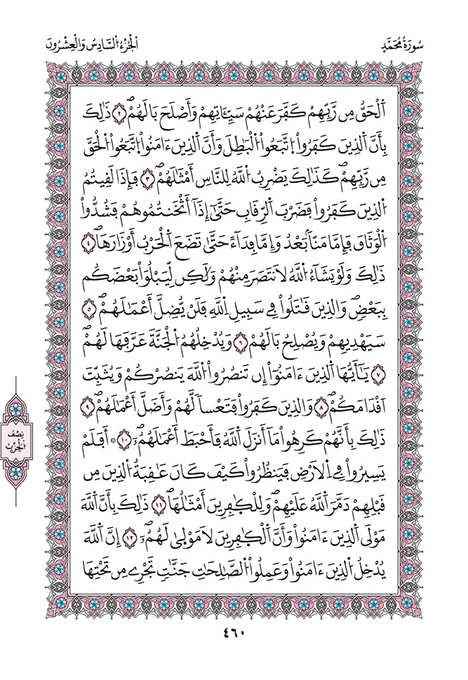 سُورَةُ مُحَمَّدٍ
اَلْجُزْءُ السَّادِسُ وَالْعِشْرُونَ
اَلْحَقُّ مِن رَّبِّهِمْ كَفَّرَ عَنْهُمْ سَيِّـَٔاتِهِمْ وَأَصْلَحَ بَالَهُمْۖ ٢ ذَٰلِكَ
بِأَنَّ اَلذِينَ كَفَرُواْ اُتَّبَعُواْ اُلْبَٰطِلَ وَأَنَّ اَلذِينَ ءَامَنُواْ اُتَّبَعُواْ اُلْحَقَّ
مِن رَّبِّهِمْۖ كَذَٰلِكَ يَضْرِبُ اُللَّهُ لِلنَّاسِ أَمْثَٰلَهُمْۖ ٣ فَإِذَا لَقِيتُمُ
اُلذِينَ كَفَرُواْ فَضَرْبَ اَلرِّقَابِ حَتَّىٰٓ إِذَآ أَثْخَنتُمُوهُمْ فَشُدُّواْ
اُلْوَثَاقَ فَإِمَّا مَنّاَۢ بَعْدُ وَإِمَّا فِدَآءً حَتَّىٰ تَضَعَ اَلْحَرْبُ أَوْزَارَهَاۖ ٤
ذَٰلِكَ وَلَوْ يَشَآءُ اُللَّهُ لَانتَصَرَ مِنْهُمْ وَلَٰكِن لِّيَبْلُوَاْ بَعْضَكُم
بِبَعْضٖۖ وَالذِينَ قَٰتَلُواْ فِے سَبِيلِ اِللَّهِ فَلَنْ يُّضِلَّ أَعْمَٰلَهُمْۖ ٥
سَيَهْدِيهِمْ وَيُصْلِحُ بَالَهُمْۖ ٦ وَيُدْخِلُهُمُ اُلْجَنَّةَ عَرَّفَهَا لَهُمْۖ
٧ يَٰٓأَيُّهَا اَلذِينَ ءَامَنُوٓاْ إِن تَنصُرُواْ اُللَّهَ يَنصُرْكُمْ وَيُثَبِّتَ
اَقْدَامَكُمْۖ ٨ وَالذِينَ كَفَرُواْ فَتَعْساً لَّهُمْ وَأَضَلَّ أَعْمَٰلَهُمْۖ ٩
ذَٰلِكَ بِأَنَّهُمْ كَرِهُواْ مَآ أَنزَلَ اَللَّهُ فَأَحْبَطَ أَعْمَٰلَهُمُۥٓۖ ١٠ أَفَلَمْ
يَسِيرُواْ فِے اِلَارْضِ فَيَنظُرُواْ كَيْفَ كَانَ عَٰقِبَةُ اُلذِينَ مِن
قَبْلِهِمْ دَمَّرَ اَللَّهُ عَلَيْهِمْۖ وَلِلْكٰ۪فِرِينَ أَمْثَٰلُهَاۖ ١١ ذَٰلِكَ بِأَنَّ اَللَّهَ
مَوْلَى اَلذِينَ ءَامَنُواْ وَأَنَّ اَلْكٰ۪فِرِينَ لَا مَوْلَىٰ لَهُمُۥٓۖ ١٢ إِنَّ اَللَّهَ
يُدْخِلُ اُلذِينَ ءَامَنُواْ وَعَمِلُواْ اُلصَّٰلِحَٰتِ جَنَّٰتٖ تَجْرِے مِن تَحْتِهَا
نِصْف
الْحِزْب
٤٦٠